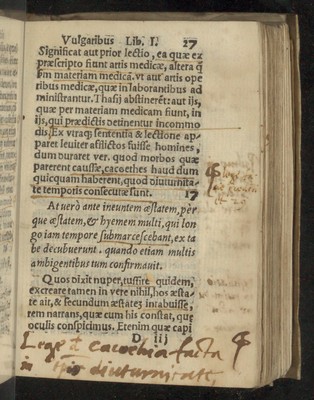 Vulgaribus Lib. I. 27
Significat aut prior lectio, ea quæ ex
præscripto fiunt artis medicæ, altera q̃
ƥm materiam medicã. vt aut artis ope
ribus medicæ, quæ in laborantibus ad
ministrantur. Thasij abstinerẽt: aut ijs,
quæ per materiam medicam fiunt, in
ijs, qui prædictis detinentur incommo
dis. Ex vtraq; sententia & lectione ap-
paret leuiter afflictos fuisse homines,
dum duraret ver. quod morbos quæ
parerent caussæ, cacoethes haud dum
quicquam haberent, quod diuturnita-
te temporis consecutæ sunt. 17
At uerò ante ineuntem æstatem, per
que æstatem, & hyemem multi, qui lon
go iam tempore submarcescebant, ex ta
be decubuerunt. quando etiam multis
ambigentibus tum confirmauit.
Quos dixit nuper, tussire quidem,
excreate tamen in vere nihil, hos æsta-
te ait, & secundum æstatẽ intabuisse,
rem narrans, quæ cum his constat, quę
oculis conspicimus. Etenim quæ capi
D iij
Lege cacoethia facta
in diuturnitate,